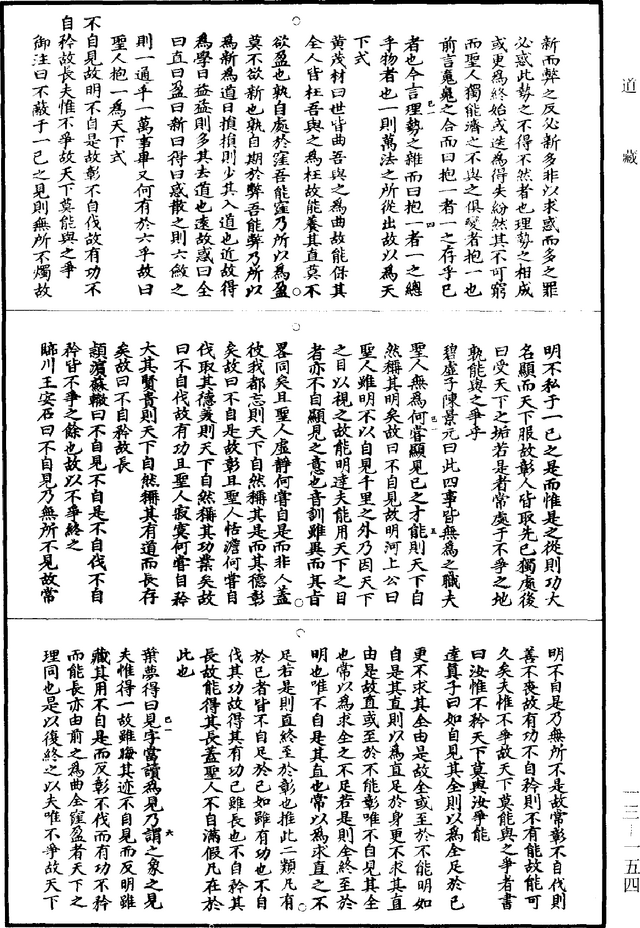 道藏
新而弊之反必新多非以求惑而多之罪
必惑此勢之不得不然者也理勢之相成
或更為終始或迭為得失紛然其不可窮
而聖人獨能濟之不與之俱變者抱一也
前言嵬嵬之合而曰抱一者一之存乎已
者也今言理勢之雜而曰抱一者一之總
乎物者也一則萬法之所從出故以為天
下式
黃茂材曰世皆曲吾與之為曲故能保其
全人皆枉吾與之為枉故能養其直莫不
欲盈也孰自處於窪吾能窪乃所以為盈
莫不欲新也孰自期於弊吾能弊乃所以
為新為道日損損則少其入道也近故得
為學日益益則多其去道也遠故惑曰全
曰直曰盈曰新曰得曰惑散之則六斂之
則一通乎一萬事畢又何有於六乎故曰
聖人抱一為天下式
不自見故明不自是故彰不自伐故有功不
自矜故長夫惟不爭故天下莫能與之爭
御注曰不蔽于一己之見則無所不燭故
明不私于一己之是而惟是之從則功大
名顯而天下服故彰人皆取先已獨處後
曰受天下之垢若是者常處于不爭之地
孰能與之爭乎
碧虛子陳景元曰此四事皆無為之職夫
聖人無為何嘗顯見已之才能則天下自
然稱其明矣故曰不自見故明河上公曰
聖人雖明不以自見千里之外乃因天下
之目以視之故能明達夫能用天下之目
者亦不自顯見之意也音訓雖異而其旨
畧同矣且聖人虛靜何嘗自是而非人蓋
彼我都忘則天下自然稱其是而其德彰
矣故曰不自是故彰且聖人恬澹何嘗自
伐取其德美則天下自然稱其功業矣故
曰不自伐故有功且聖人寂寞何嘗自矜
大其賢貴則天下自然稱其有道而長存
矣故曰不自矜故長
潁濱蘇轍曰不自見不自是不自伐不自
矜皆不爭之餘也故以不爭終之
臨川王安石曰不自見乃無所不見故常
明不自是乃無所不是故常彰不自伐則
善不喪故有功不自矜則不有能故能可
久矣夫惟不爭故天下莫能與之爭者書
曰汝惟不矜天下莫與汝爭能
達真子曰如自見其全則以為全足於已
更不求其全由是故全或至於不能明如
自是其直則以為直足於身更不求其直
由是故直或至於不能彰唯不自見其全
也常以為求全之不足若是則全終至於
明也唯不自是其直也常以為求直之不
足若是則直終至於彰也推此二類凡有
於已者皆不自足於已如雖有功也不自
伐其功故得其有功已雖長也不自矜其
長故能得其長蓋聖人不自滿假凡在於
此也
葉夢得曰見字當讀為見乃謂之象之見
夫惟得一故雖晦其迹不自見而反明雖
藏其用不自是而反彰不伐而有功不矜
而能長亦由前之為曲全窪盈者天下之
理同也是以復終之以夫唯不爭故天下
一三—一五四